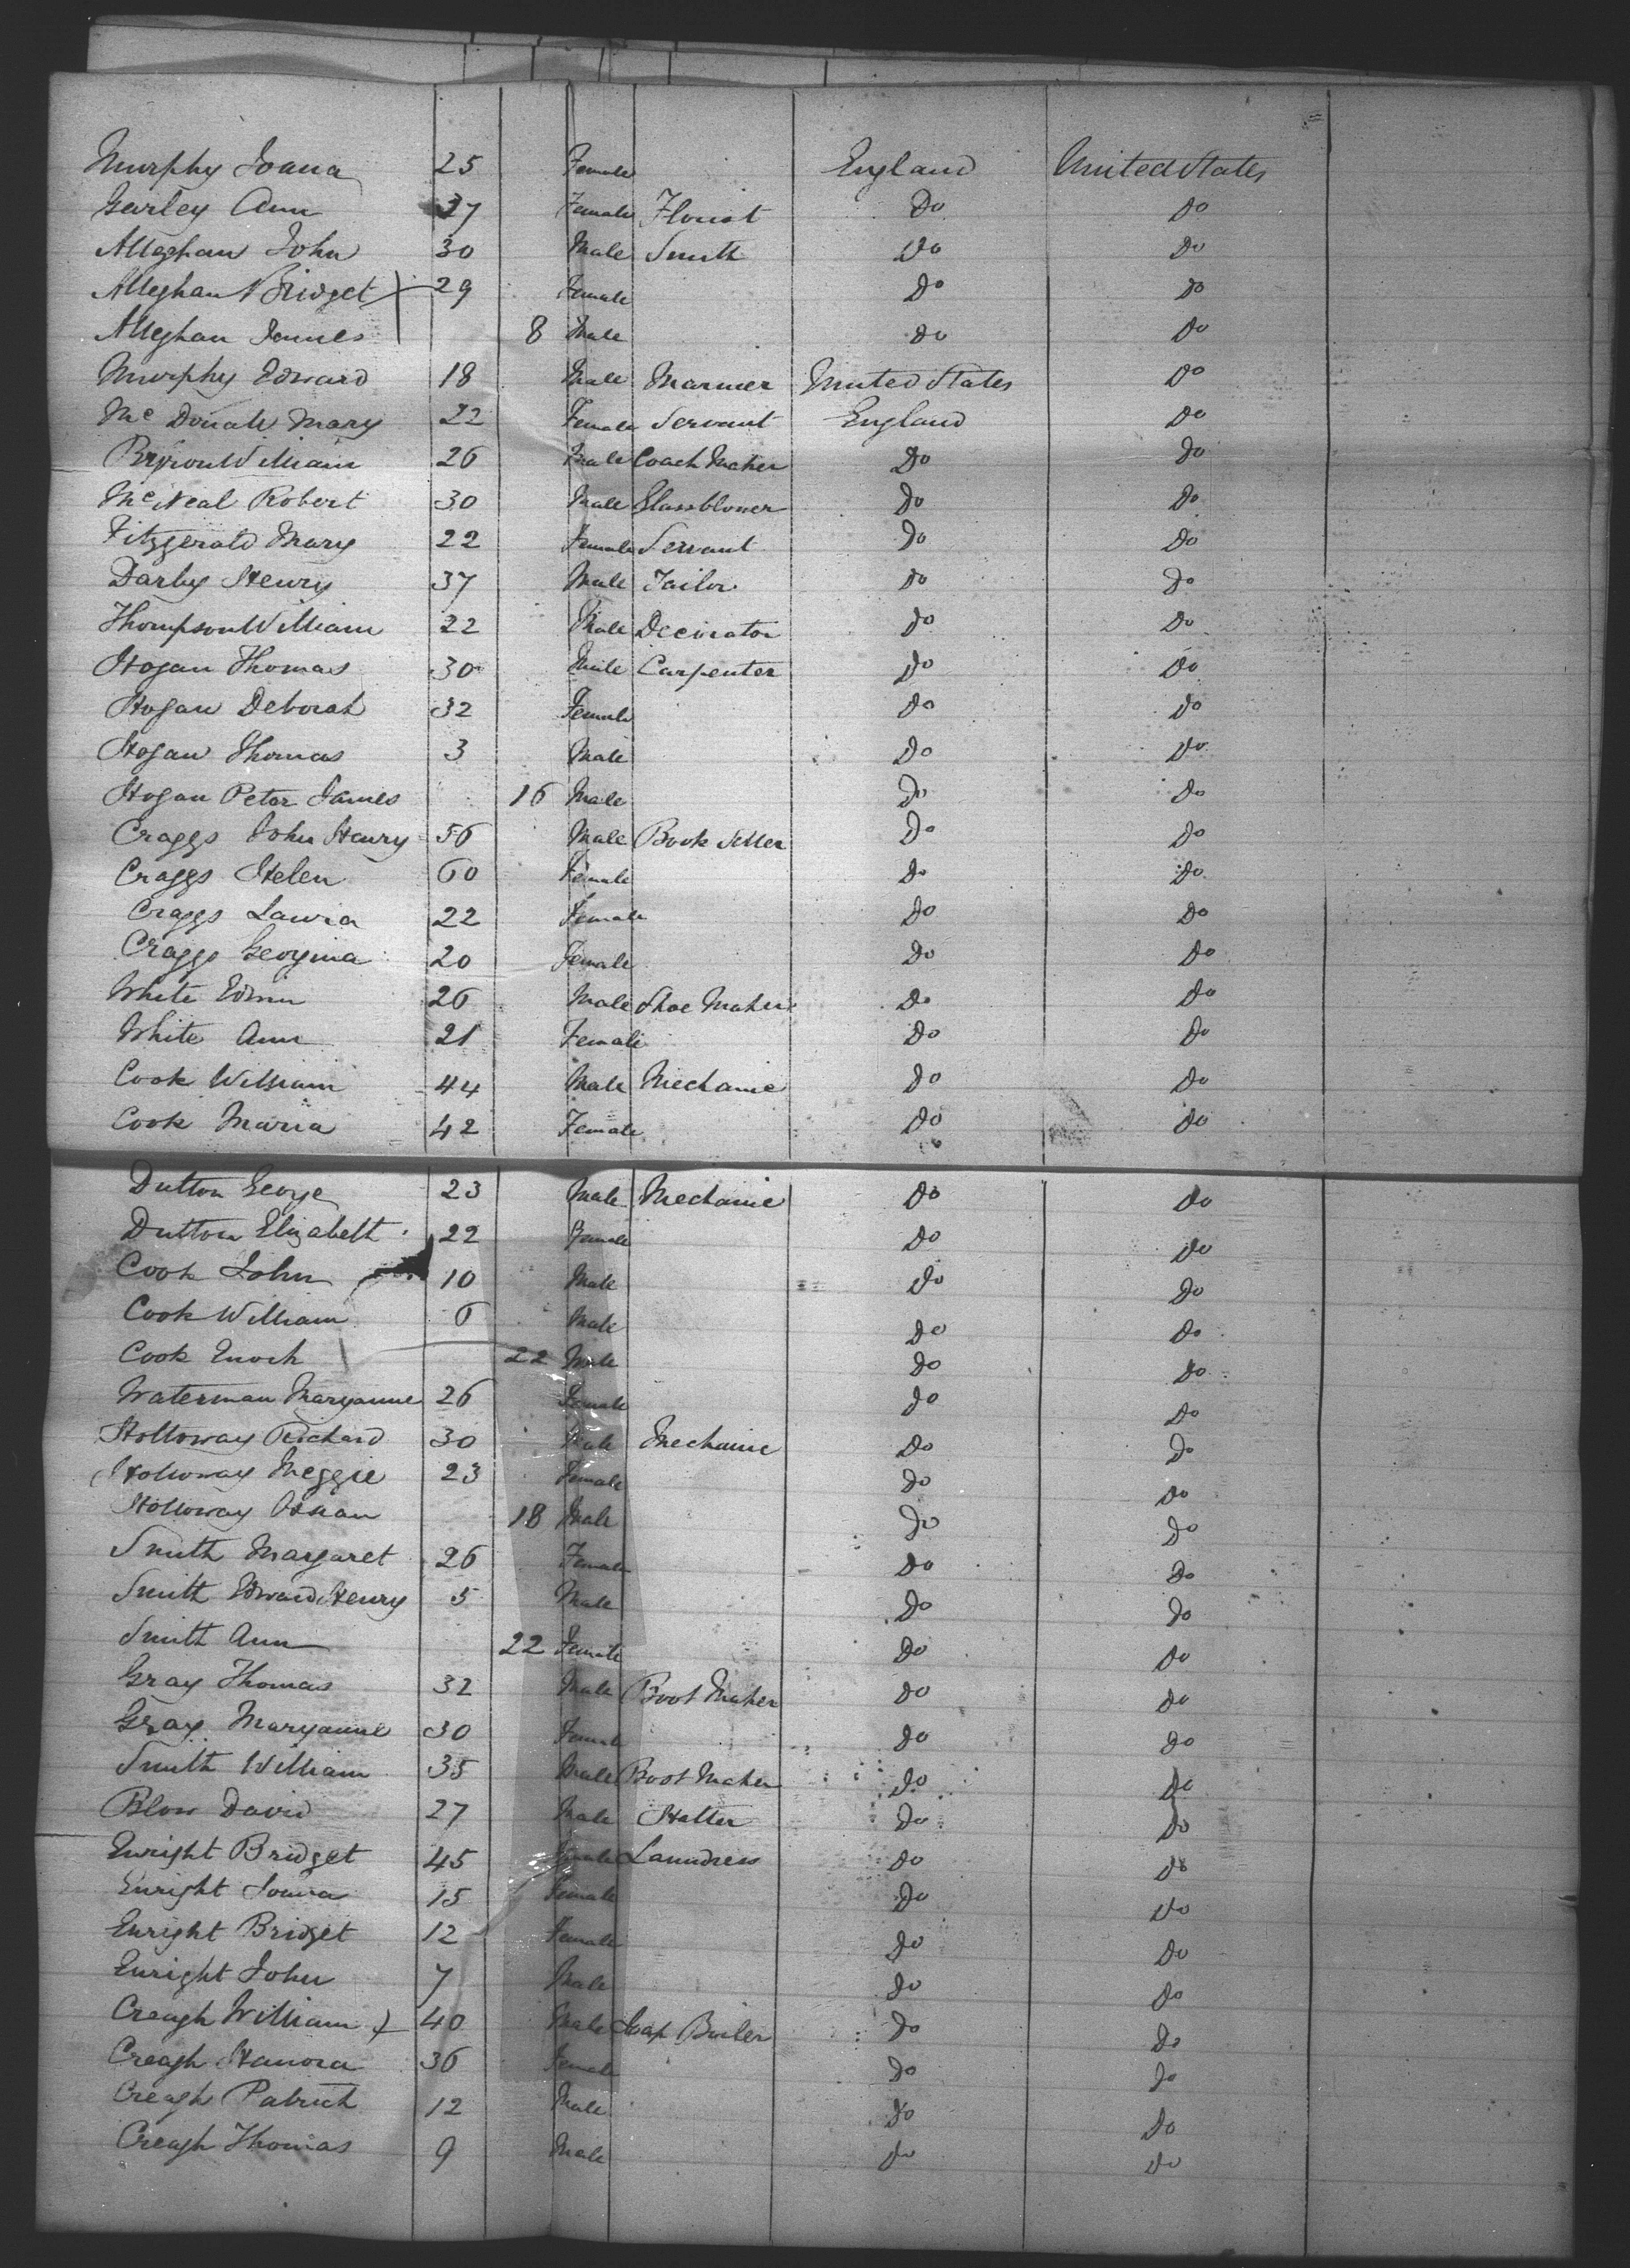 Murphy Joana 25 Female England United States
Garley Ann 37 Female Florist Do Do
Alleghan John 30 Male Smith Do Do
Alleghan Bridget 29 Female Do Do
Alleghan James 8 Male Do Do
Murphy Edward 18 Male Mariner United States Do
Mc Donale Mary 22 Female Servant England Do
William 26 Male Coach Maker Do Do
Mc Neal Robert 30 Male Glassblower Do Do
Fitzgerald Mary 22 Female Servant Do Do
Darby Henry 37 Male Tailor Do Do
Thompson William 22 Male Decorator Do Do
Hogan Thomas 30 Male Carpenter Do Do
Hogan Deborah 32 Female Do Do
Hogan Thomas 3 Male Do Do
Hogan Peter James 16 Male Do Do
Craggs John Henry 56 Male Book Seller Do Do
Craggs Helen 60 Female Do Do
Craggs Laura 22 Female Do Do
Craggs Georgina 20 Female Do Do
White Edwin 26 Male Shoe Maker Do Do
White Ann 21 Female Do Do
Cook William 44 Male Mechanic Do Do
Cook Maria 42 Female Do Do
Dutton George 23 Male Mechanic Do Do
Dutton Elizabeth 22 Female Do Do
Cook John 10 Male Do Do
Cook William 6 Male Do Do
Cook Enoch 22 Male Do Do
Waterman Maryanne 26 Female Do Do
Holloway Richard 30 Male Mechanic Do Do
Holloway Meggie 23 Female Do Do
Holloway 18 Male Do Do
Smith Margaret 26 Female Do Do
Smith Edward Henry 5 Male Do Do
Smith Ann 22 Female Do Do
Gray Thomas 32 Male Boot Maker Do Do
Gray Maryanne 30 Female Do Do
Smith William 35 Male Boot Maker Do Do
Blow David 27 Male Hatter Do Do
Enright Bridget 45 Female Laundress Do Do
Enright Joana 15 Female Do Do
Enright Bridget 12 Female Do Do
Enright John 7 Male Do Do
Creagh William 40 Male Soap Boiler Do Do
Creagh Hanora 36 Female Do Do
Creagh Patrick 12 Male Do Do
Creagh Thomas 9 Male Do Do